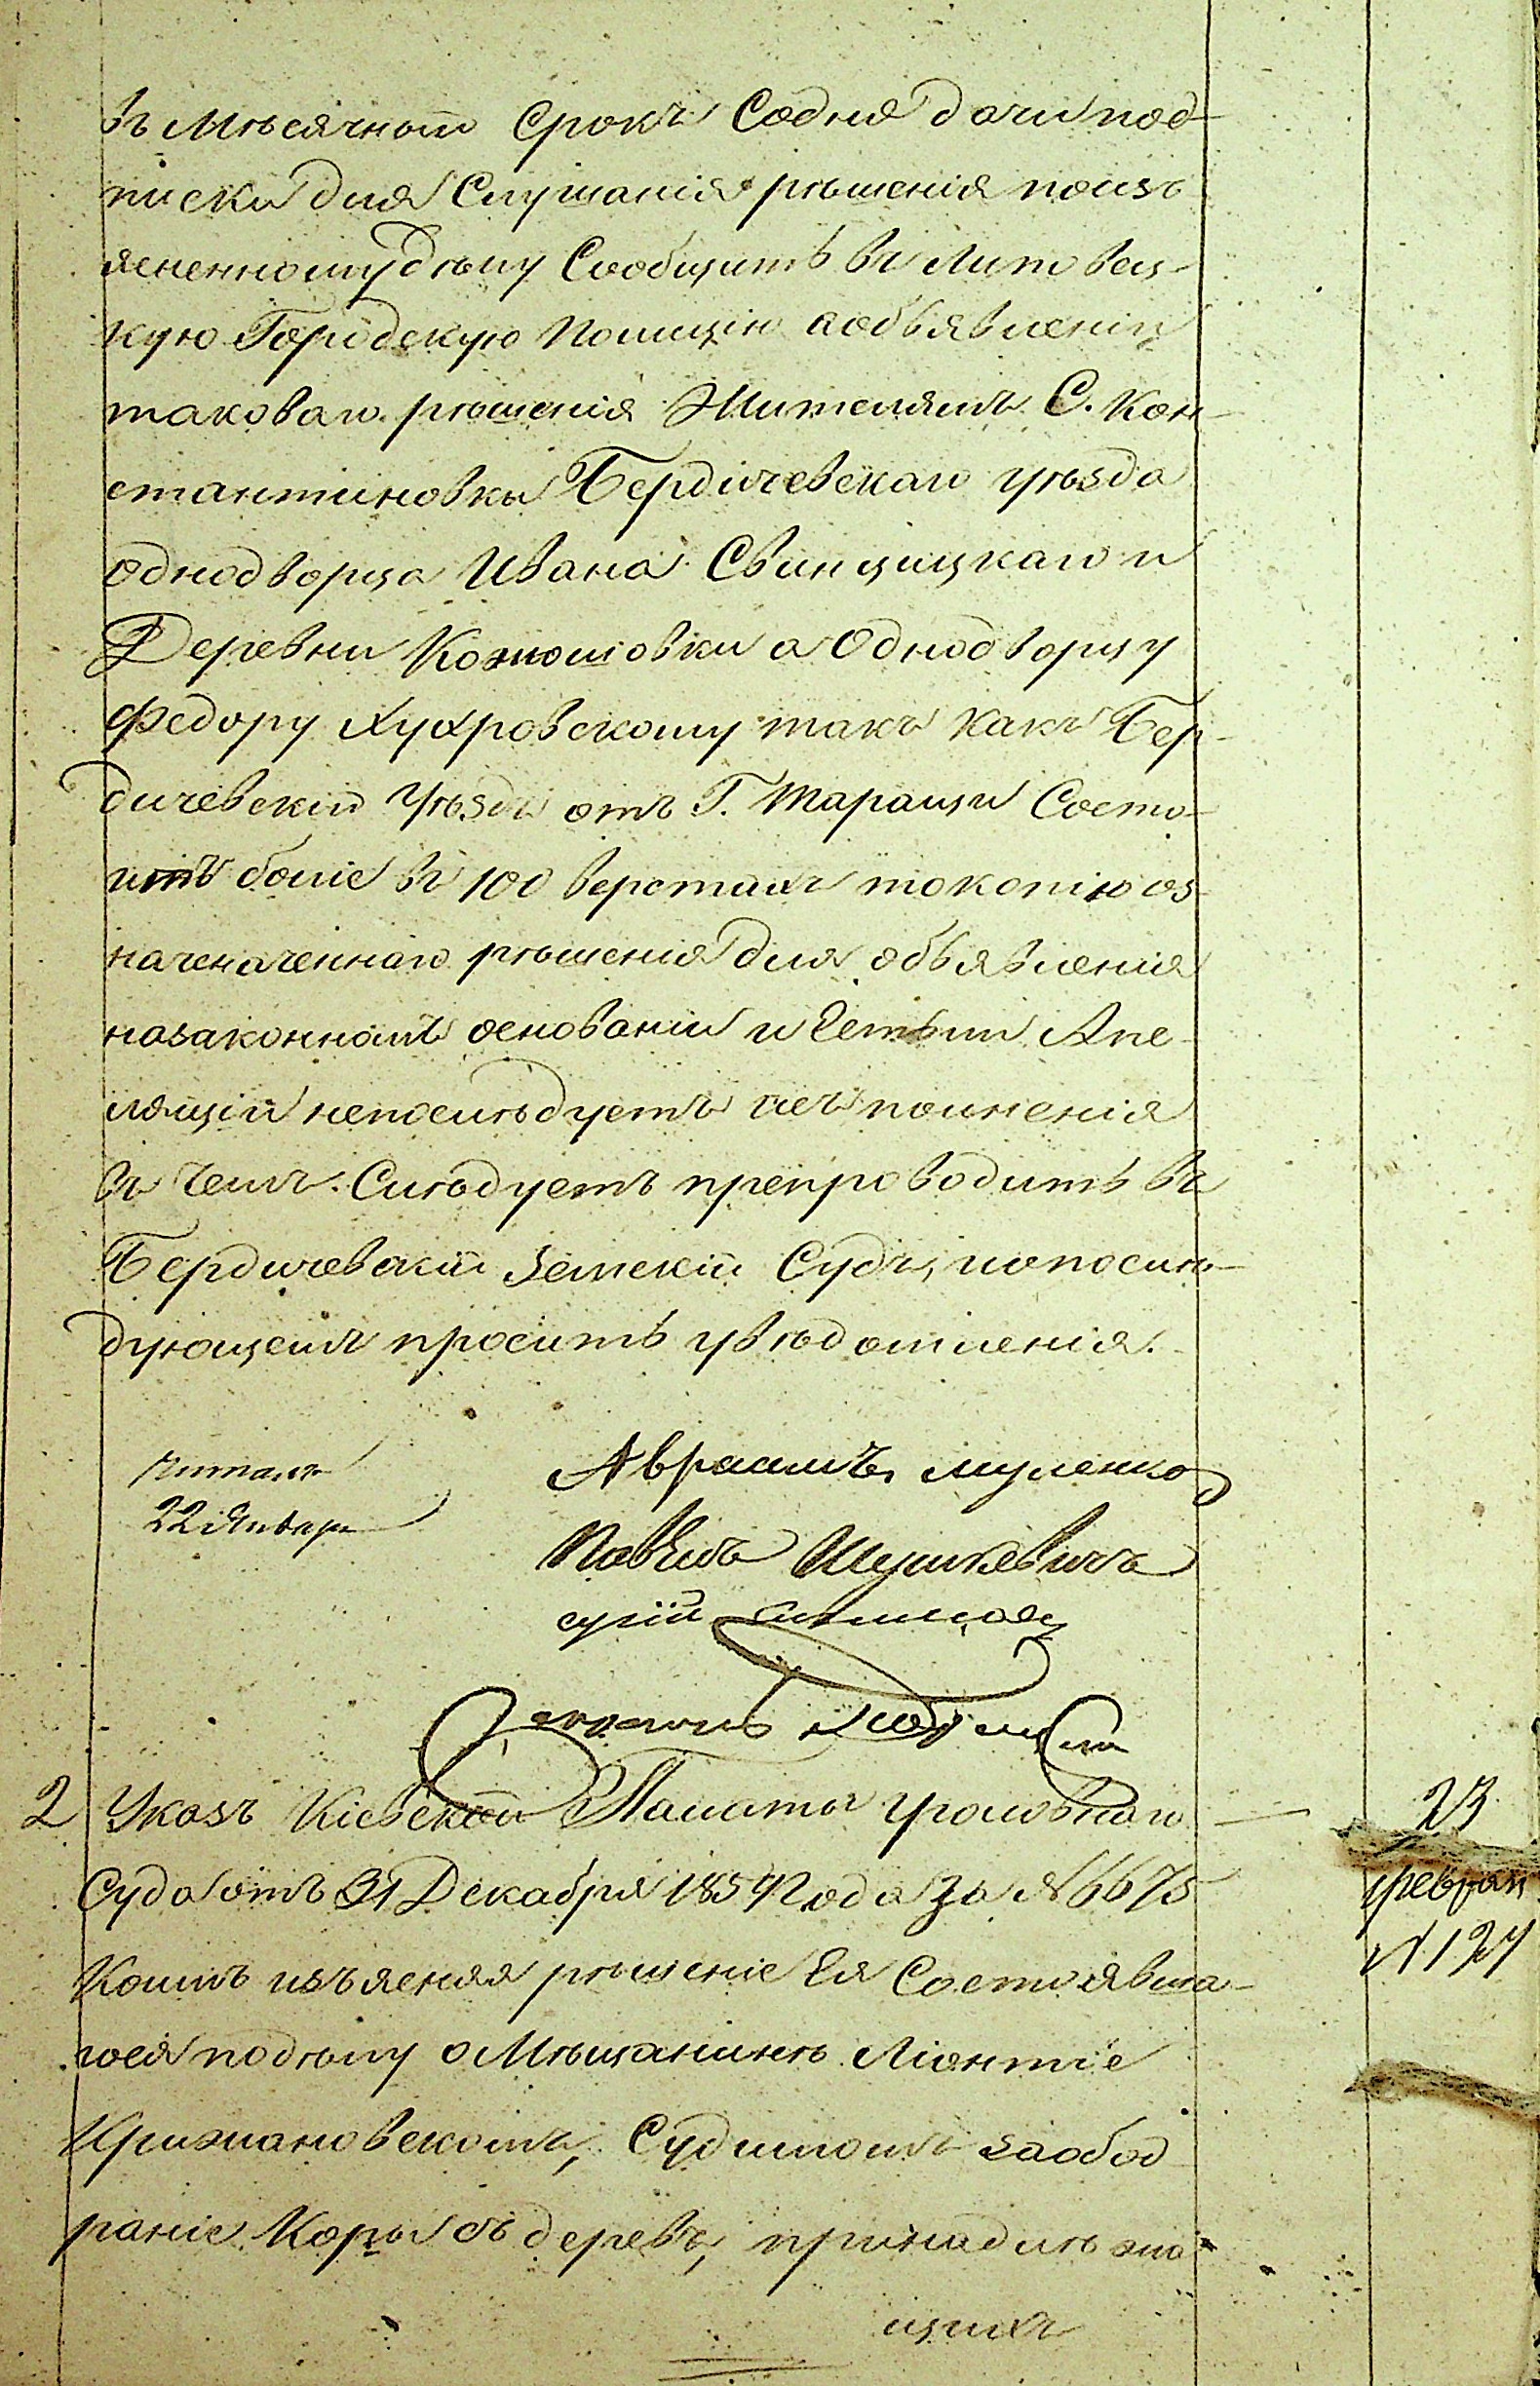 въ мѣсячный срокъ Содня дачи под-
писки для Слушанія рѣшенія поизъ
ясненномудѣлу Сообщить въ Липовец-
кую Городскую полицію аобъявленіи
таковаго рѣшенія Жителямъ С. Кон-
стантиновки Бердичевскаго уѣзда
однодворца Ивана Свинцицкаго и
Деревни Кожшовки а Однодворцу
Федору Хухровскому такъ какъ Бер-
дичевскій уѣздъ отъ Г. Таращи Состо-
итъ боліе въ 100 верстахъ то копію оз-
наченаченнаго рѣшенія для объявленія
назаконномъ основаніи и Естьли Апе-
ляціи непослѣдуетъ исъполненія
въ чемъ Слѣдуетъ препроводить въ
Бердичевскій Земскій Судъ, ипослѣ-
дующемъ просить увѣдомленія.
Авраамъ Муленко
Читалъ
22 Январ
Павелъ Шушкевичъ
2 Указъ Кіевской Палаты уголовнаго — 23
Суда отъ 31 Декабря 1854 года за № 6675 феврал
Коимъ изъясняя рѣшеніе Ея Состоявша- № 124
гося подѣлу о Мѣщанинѣ Ліонтіе
Крижановскомъ, Судимомъ заобод
раніе Коры съ деревъ, принадлѣжа
щихъ